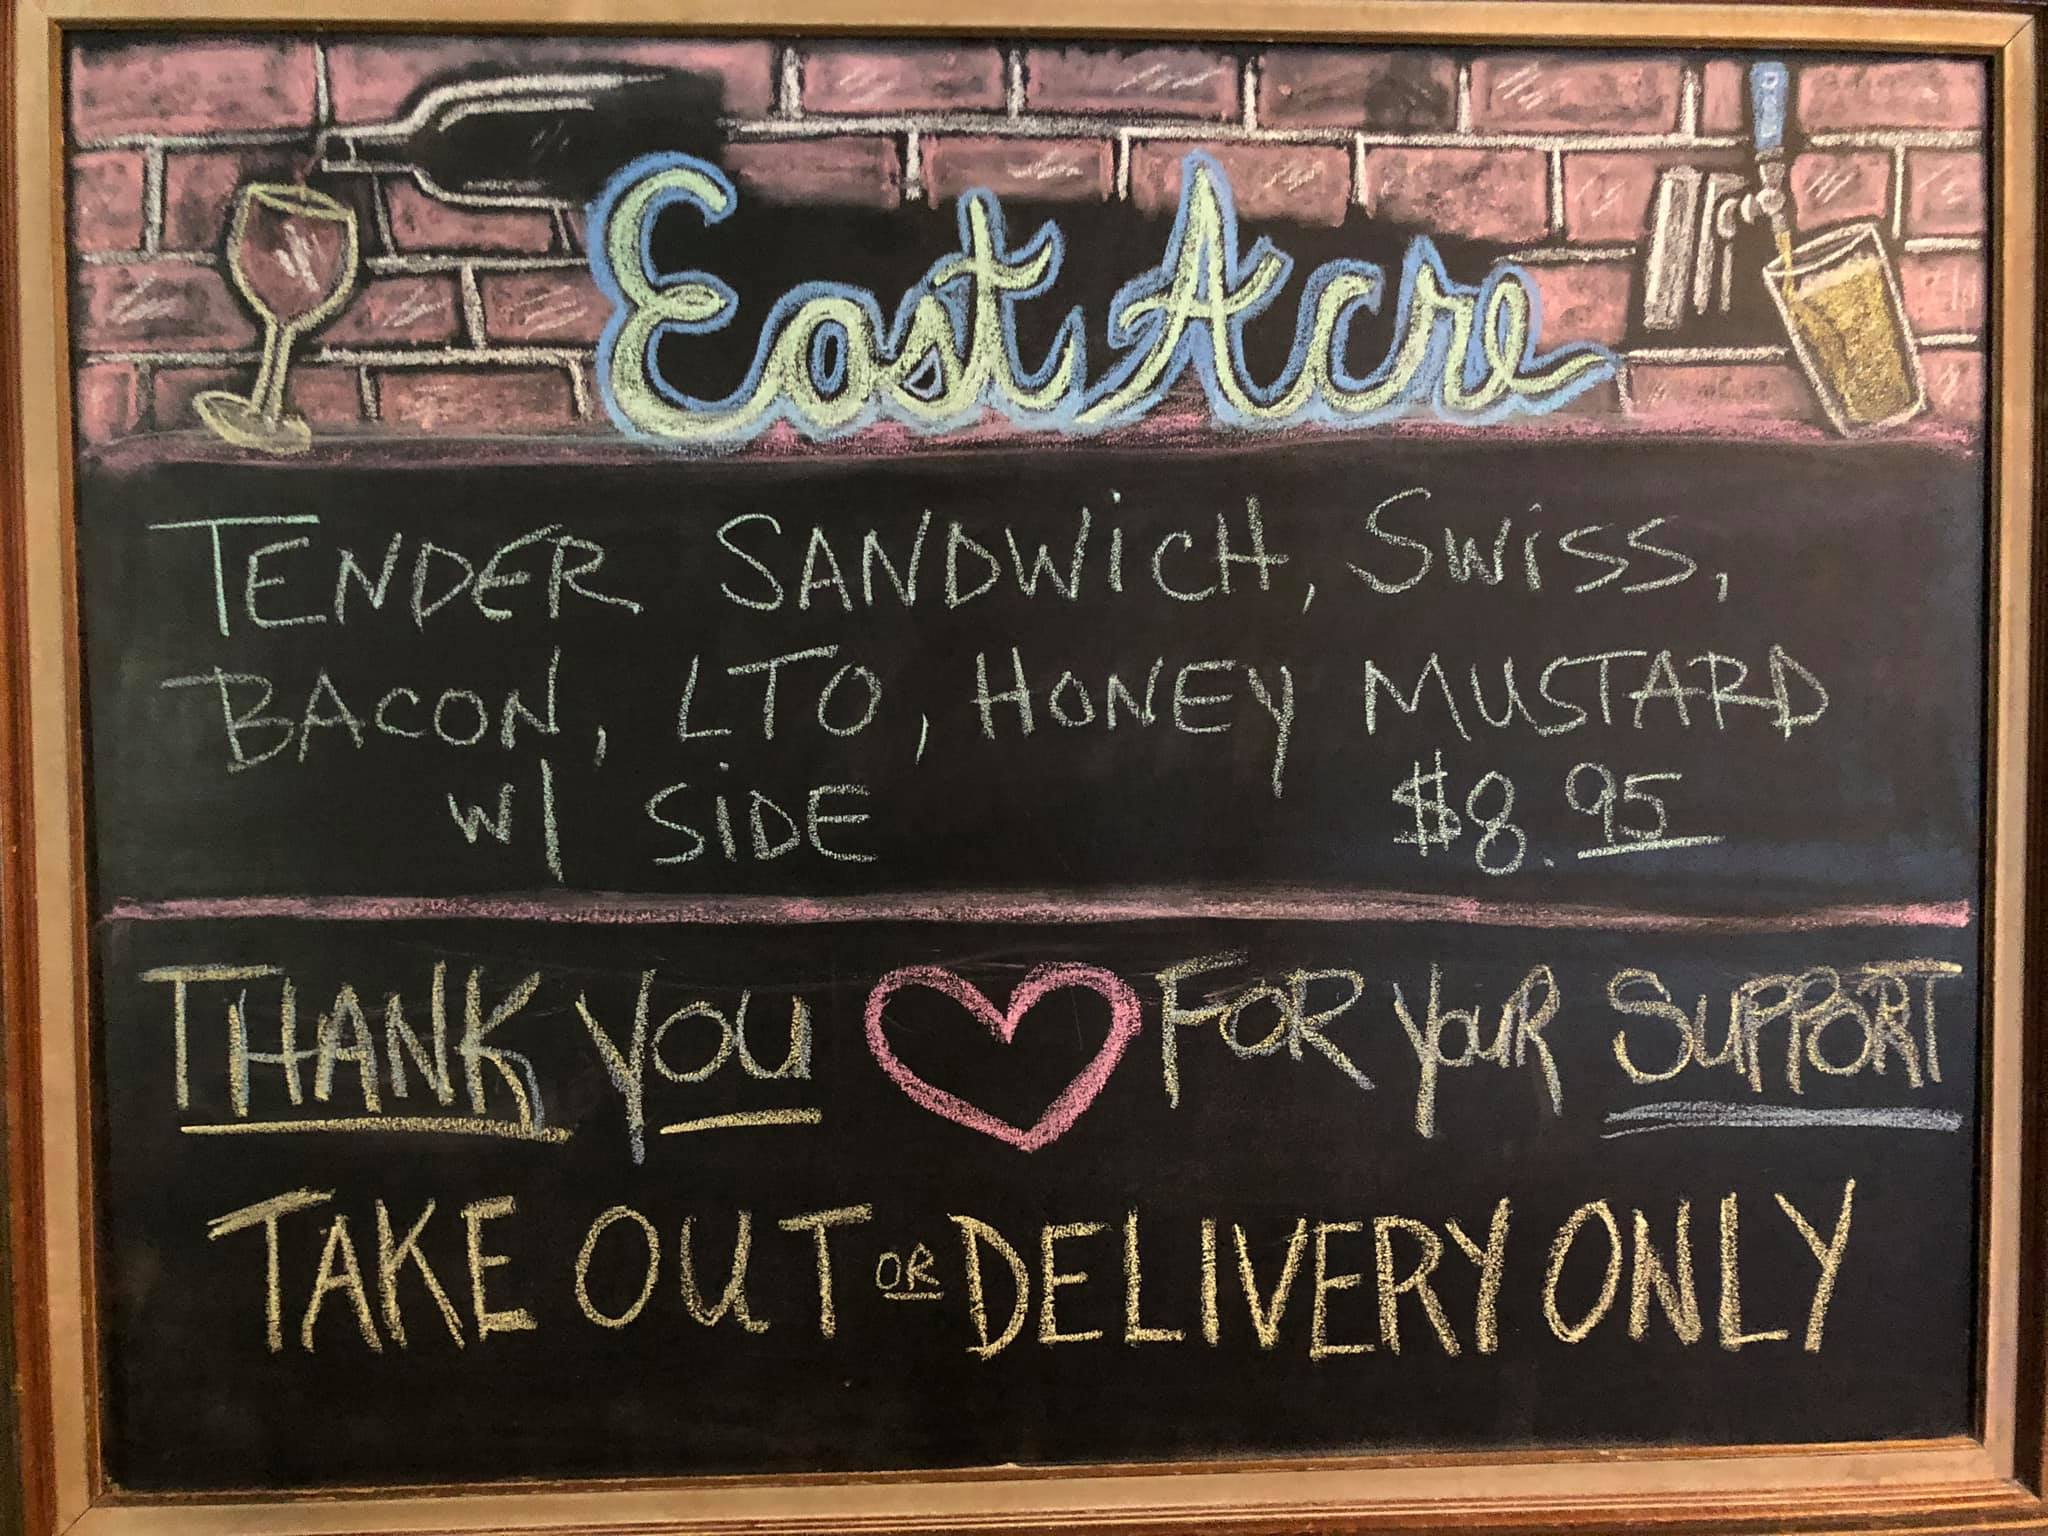 East Acre
TENDER SANDWiCH, SWiSS,
BACON, LTO, HONEY MUSTARD
W/ SiDE $8.95
THANK YOU FOR YOUR SUPPORT
TAKE OUT OR DELIVERY ONLY